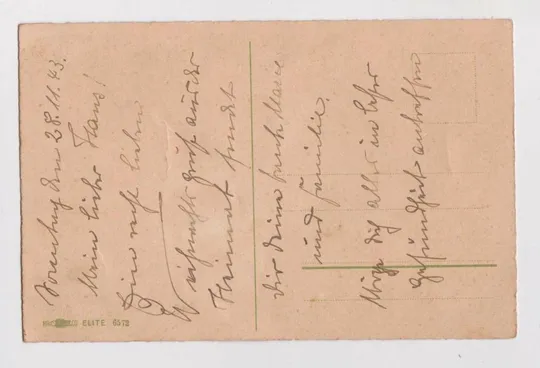 Sonntag den 28.11.43.
Mein lieber Hans!
Ein recht lieben
Weihnachtsgruß aus der
Heimat sendet
dir deine Marie
und Familie.
Möge dich alles in bester
Gesundheit antreffen
ELITE